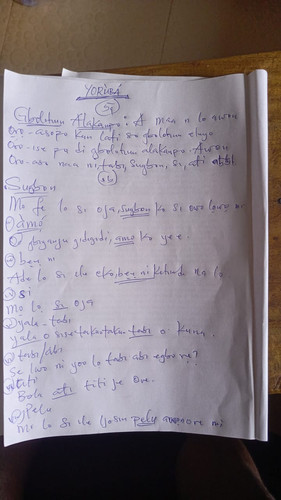 YORUBÁ
S1
Gbolohun Alakanpo: A maa n lo awon
Oro-asopo kan lati se gbolohun eleyo
Oro-ise po di gbolohun alakanpo. Awon
Oro-aso naa ni, tabi, sugbon, si, ati
Sugbon
Mo fe lo si oja, sugbon ko si owo lowo mi
amo
O gbiyanju gidigidi, amo ko yee
beni
Ade lo si ile eko, beni Kehinde na lo
Si
mo lo si oja
yala-tabi
yala o sise takuntakun tabi o kuna.
tabi/abi
Se iwo ni yoo lo tabi abi egbon re?
ati
Bola ati titi je ore.
Pelu
mo lo si ile ijosin pelu ore mi